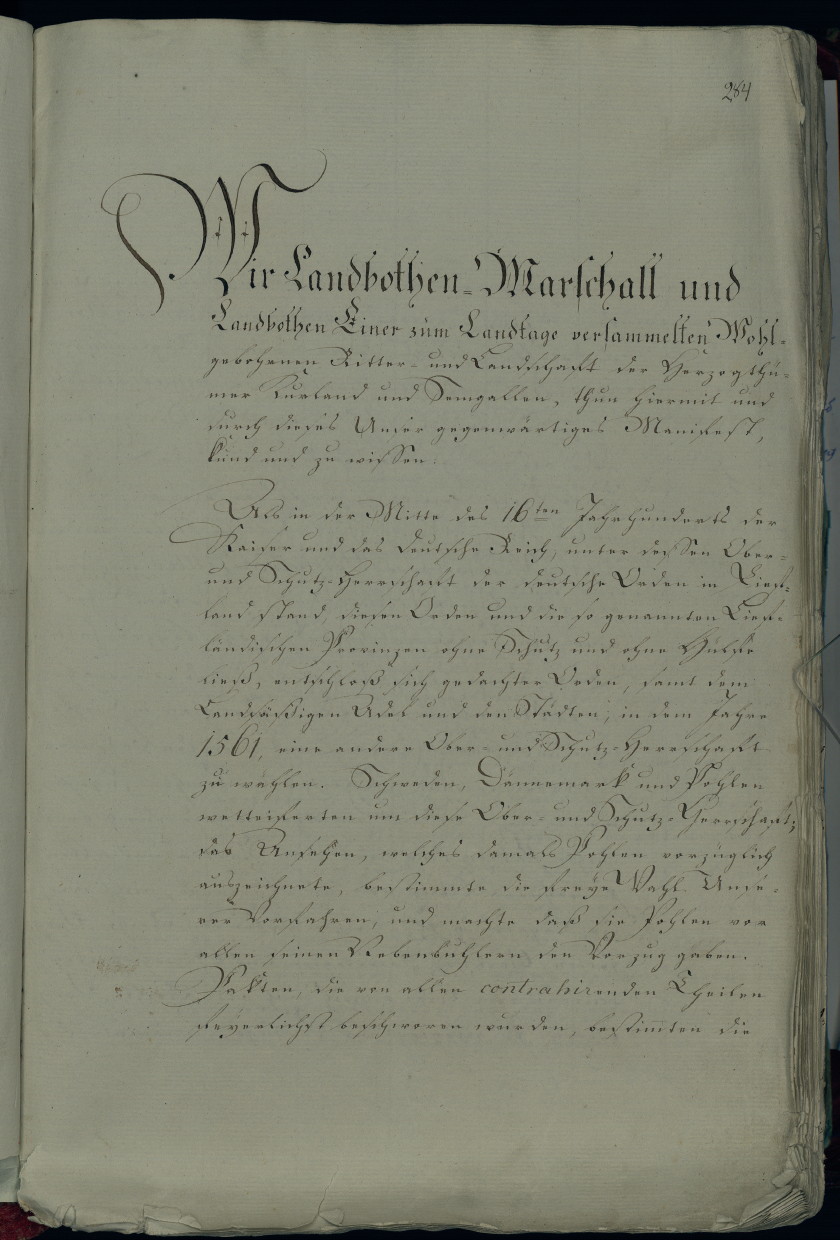 284
Wir Landbothen-Marschall und
Landbothen Einer zum Landtage versammelten Wohl-
gebohrnen Ritter- und Landschaft der Herzogthü-
mer Kurland und Semgallen, thun hiermit und
durch dieses Unser gegenwärtiges Manifest,
kund und zu wissen:
Als in der Mitte des 16ten Jahrhunderts der
Kaiser und das deutsche Reich, unter dessen Ober-
und Schutz-Herrschaft der deutsche Orden in Lief-
land stand, diesen Orden und die so genannten Lief-
ländischen Provinzen ohne Schutz und ohne Hülfe
ließ, entschloß sich gedachter Orden, samt dem
Landsäßigen Adel und den Städten, in dem Jahre
1561, eine andere Ober- und Schutz-Herrschaft
zu wählen. Schweden, Dännemark und Pohlen
wetteiferten um diese Ober- und Schutz-Herrschaft;
das Ansehen, welches damals Pohlen vorzüglich
auszeichnete, bestimmte die freye Wahl Unse-
rer Vorfahren, und machte daß sie Pohlen vor
allen seinen Nebenbuhlern den Vorzug gaben.
Pakten, die von allen contrahirenden Theilen
feyerlichst beschworen wurden, bestimten die